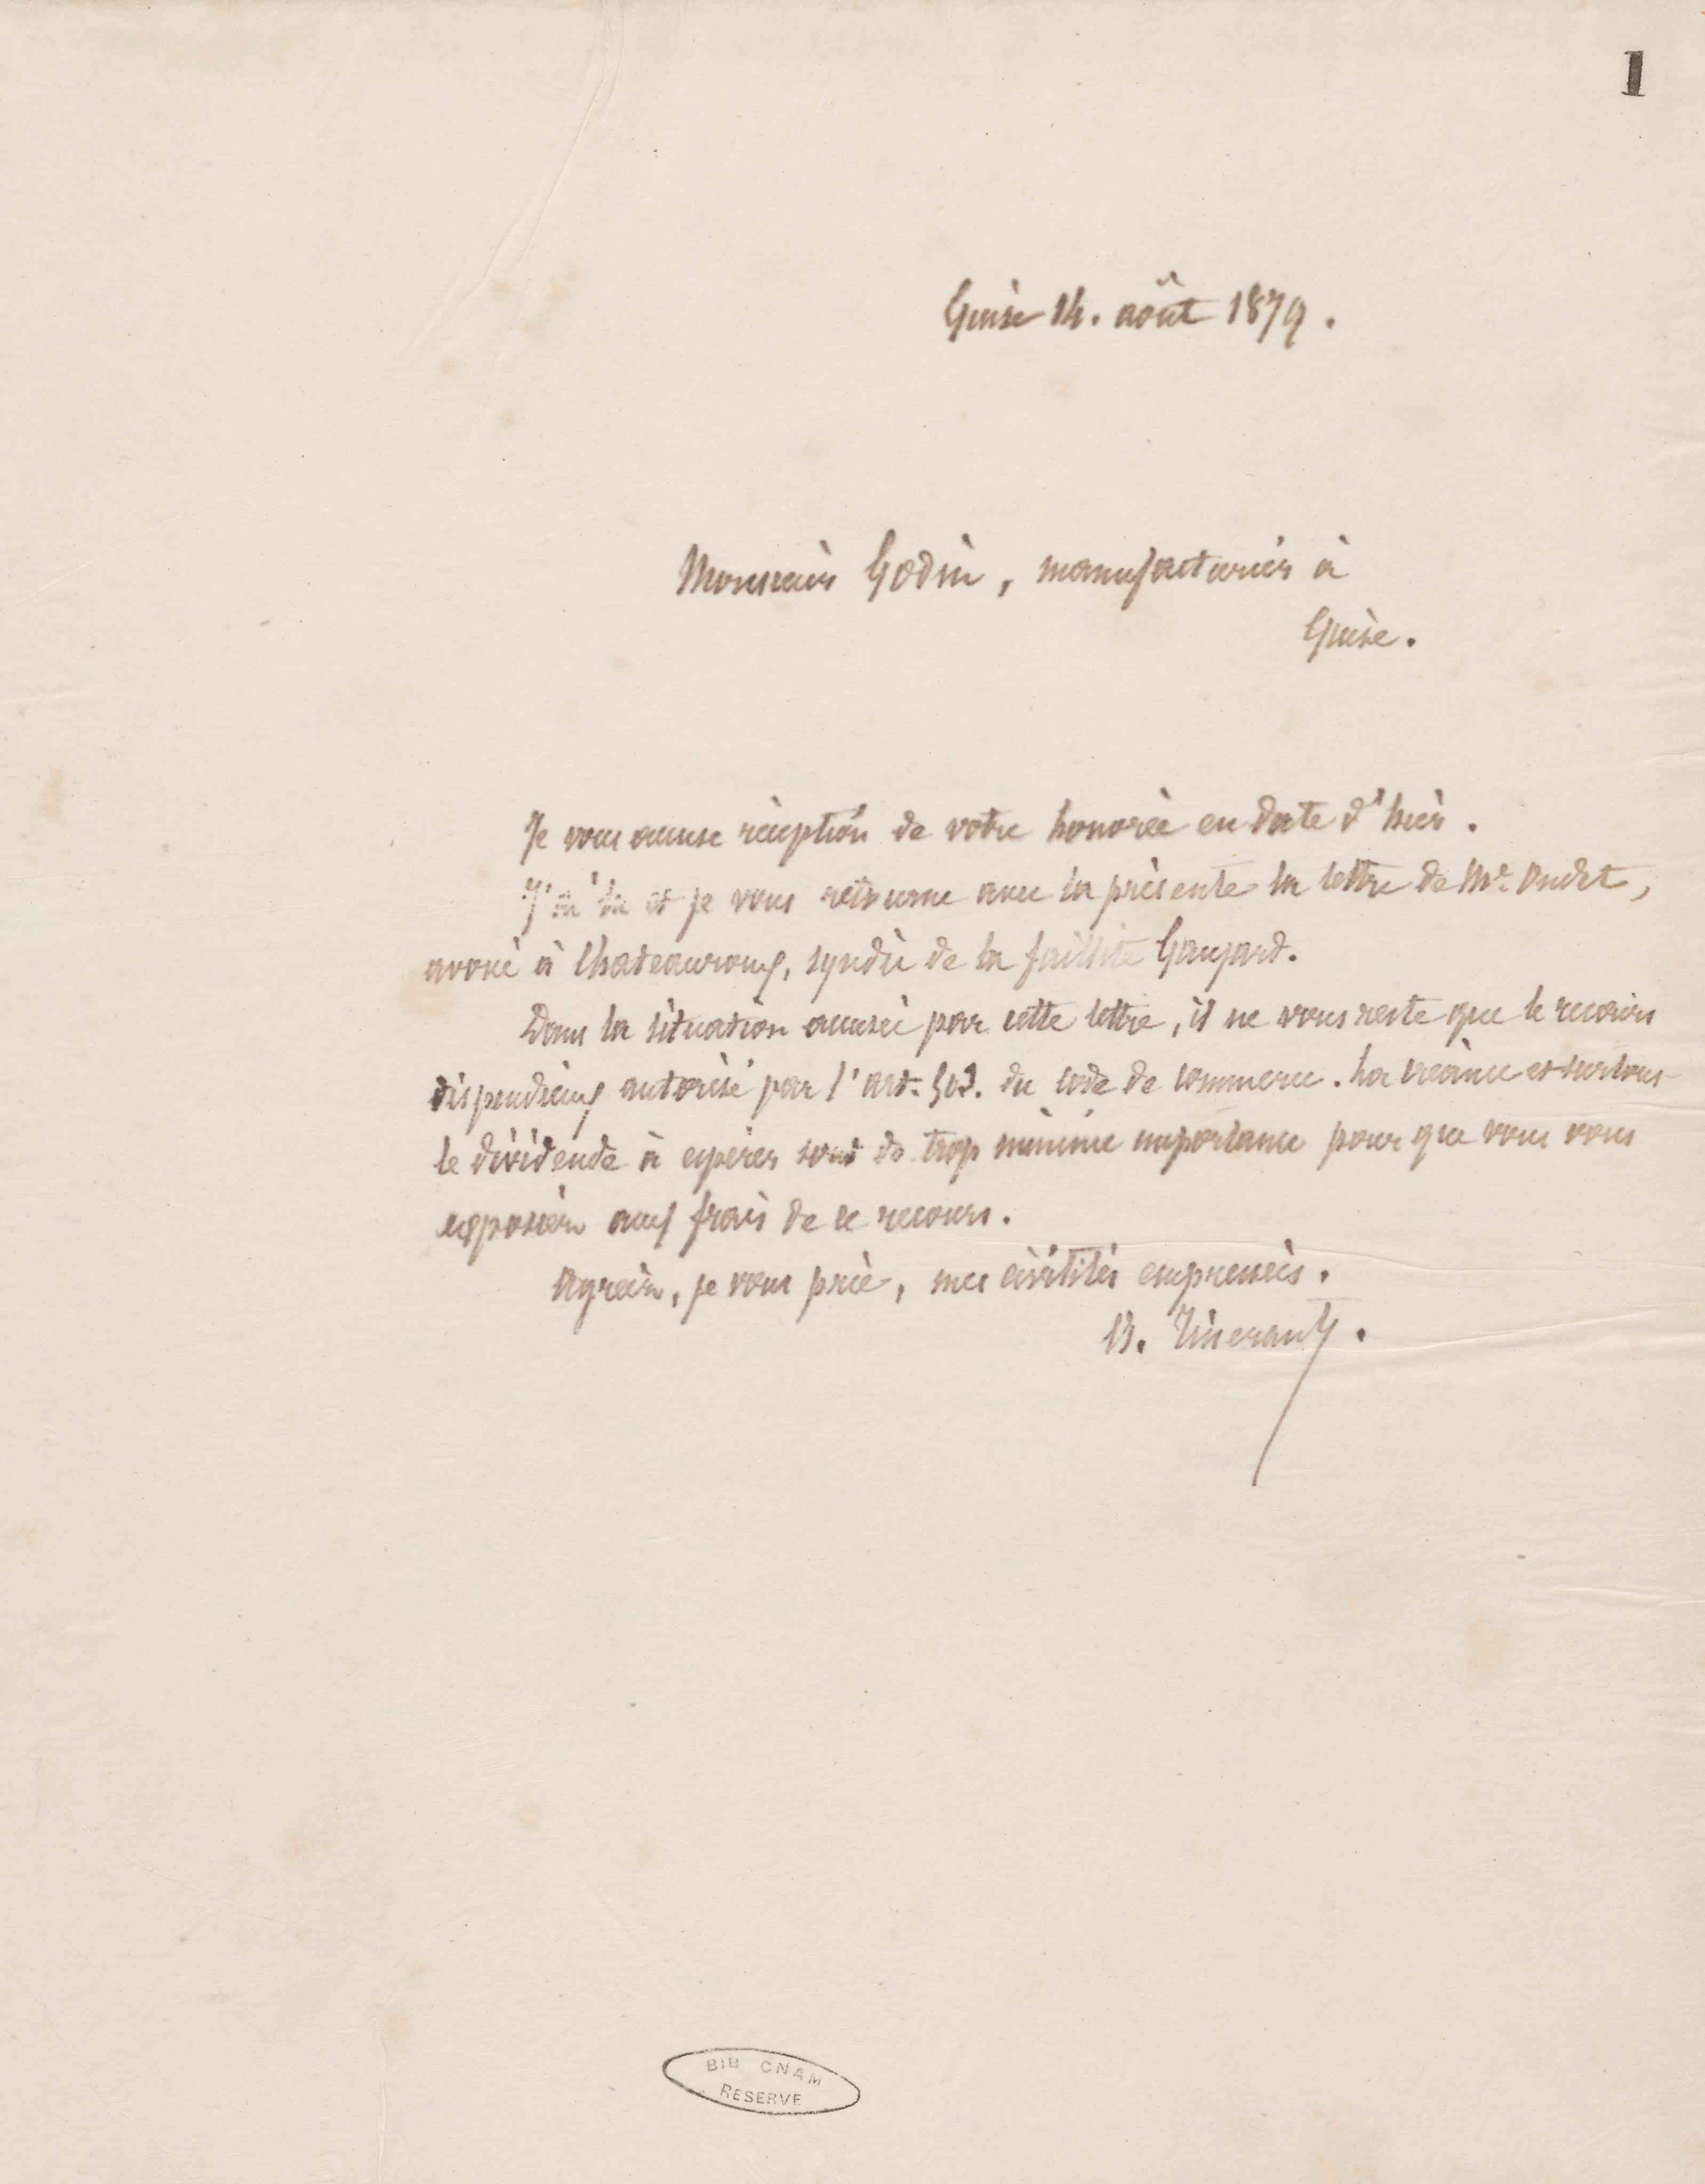 1
Guise 14. août 1879.
Monsieur Godin, manufacturier à
Guise.
Je vous accuse réception de votre honorée en date d'hier.
J'ai lu et je vous retourne avec la présente la lettre de Mr. Oudet,
avoué à Chateauroux, syndic de la faillite
Dans la situation accusée par cette lettre, il ne vous reste que le recours
dispendieux autorisé par l'art. 503. du code de commerce. La créance et surtout
le dividende à espérer sont de trop minime importance pour que vous vous
exposiez aux frais de ce recours.
Agréez, je vous prie, mes civilités empressées.
BIB CNAM
RESERVE